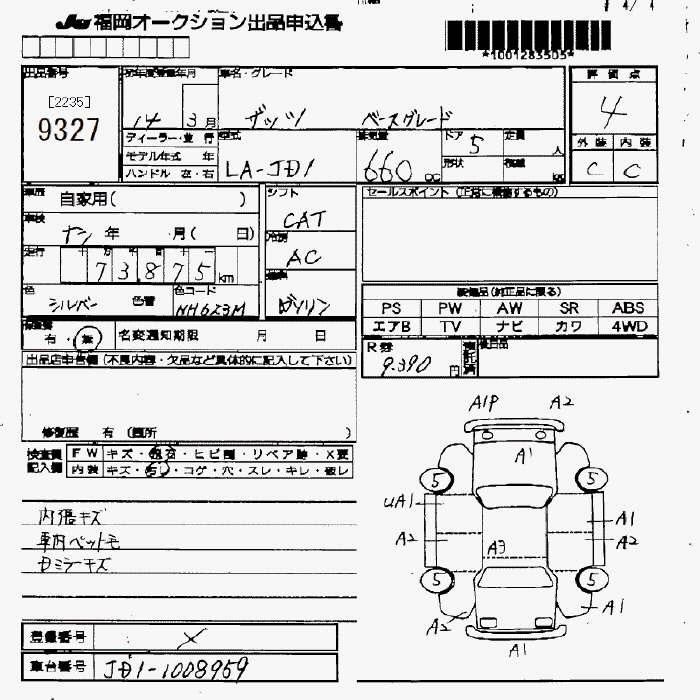 JU 福岡オークション出品申込書
*1001283505*
出品番号
[2235]
9327
初年度登録年月
14 3月
車名・グレード
ザッツ ベースグレード
評価点
4
外装 内装
C C
ディーラー・並行
モデル年式 年
ハンドル 左・右
型式
LA-JD1
排気量
660 cc
ドア 5
形状
定員 人
積載 kg
車歴
自家用( )
車検
ナシ 年 月( 日)
走行
十 万 千 百 十 一
7 3,8 7 5 km
色
シルバー 色替
色コード
NH623M
シフト
CAT
冷房
AC
燃料
ガソリン
セールスポイント (正常に機能するもの)
装備品(純正品に限る)
PS PW AW SR ABS
エアB TV ナビ カワ 4WD
R券
9.390 円
後日品
修復歴
有・無 名変通知期限 月 日
出品店申告欄 (不良内容・欠品など具体的に記入して下さい)
修復歴 有 (箇所 )
検査員記入欄
FW キズ・飛石・ヒビ割・リペア跡・X要
内装 キズ・汚レ・コゲ・穴・スレ・キレ・破レ
内張キズ
車内ペット毛
Dミラーキズ
A1P A2
A1
5 5
UA1 A1
A2 A2
A3
5 5
A2 A1
A1
登録番号 ×
車台番号 JD1-1008959